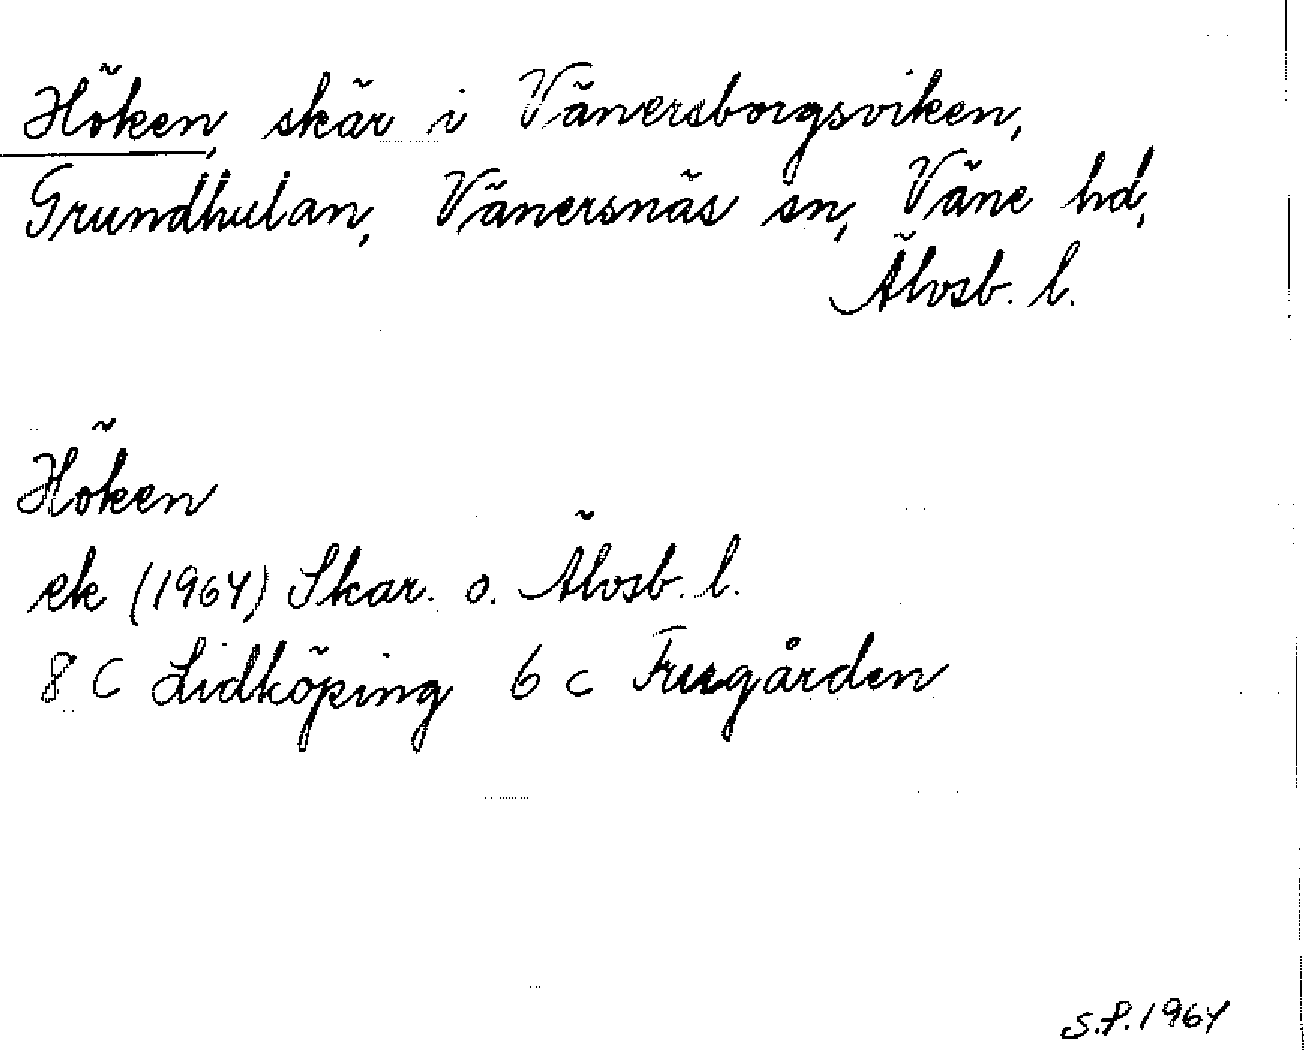 Höken, skär i Vänersborgsviken,
Grundhulan, Vänersnäs sn, Väne hd,
Älvsb. l.
Höken
ek (1964) Skar. o. Älvsb. l.
8 C Lidköping 6 c Frugården
S.P. 1964